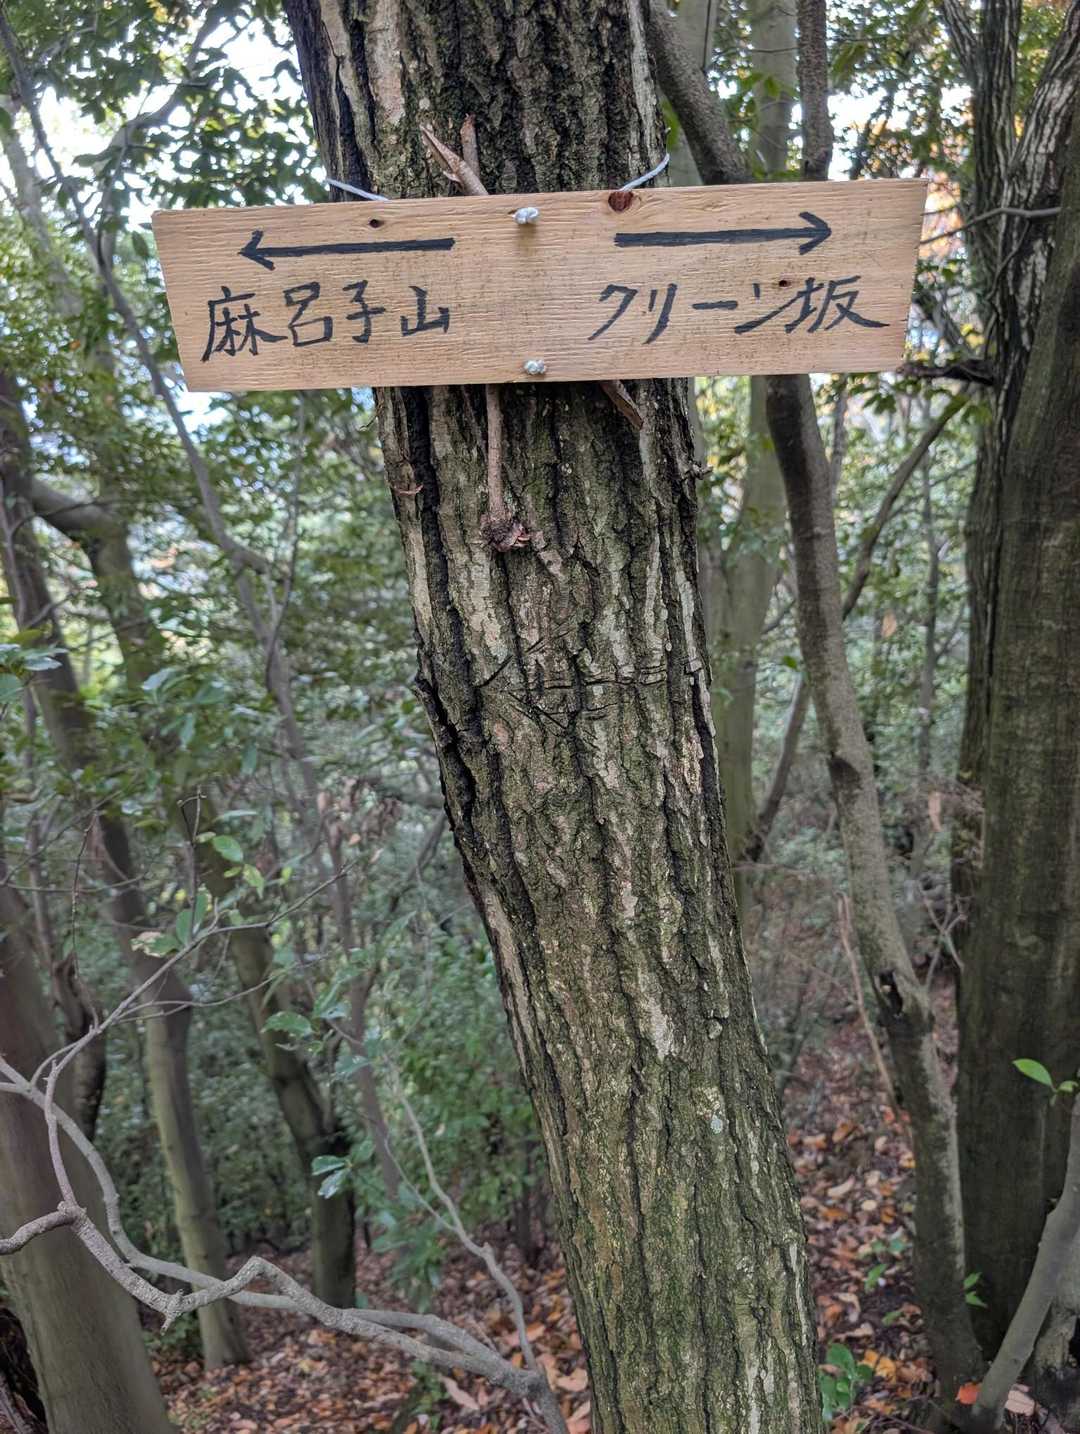 ← →
麻呂子山 クリーン坂